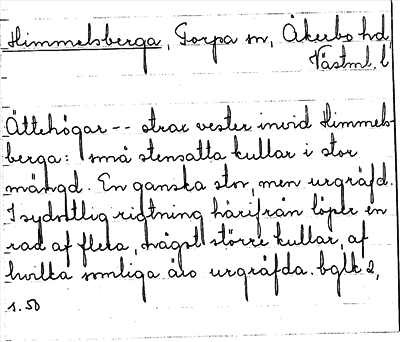 Himmelsberga, Torpa sn, Åkerbo hd
Västml. l
Ättehögar -- strax vester invid Himmels-
berga: små stensatta kullar i stor
mängd. En ganska stor, men urgräfd.
I sydostlig rigtning härifrån löper en
rad af flera, någst större kullar, af
hvilka somliga äro urgräfda. bglk 2,
s. 50